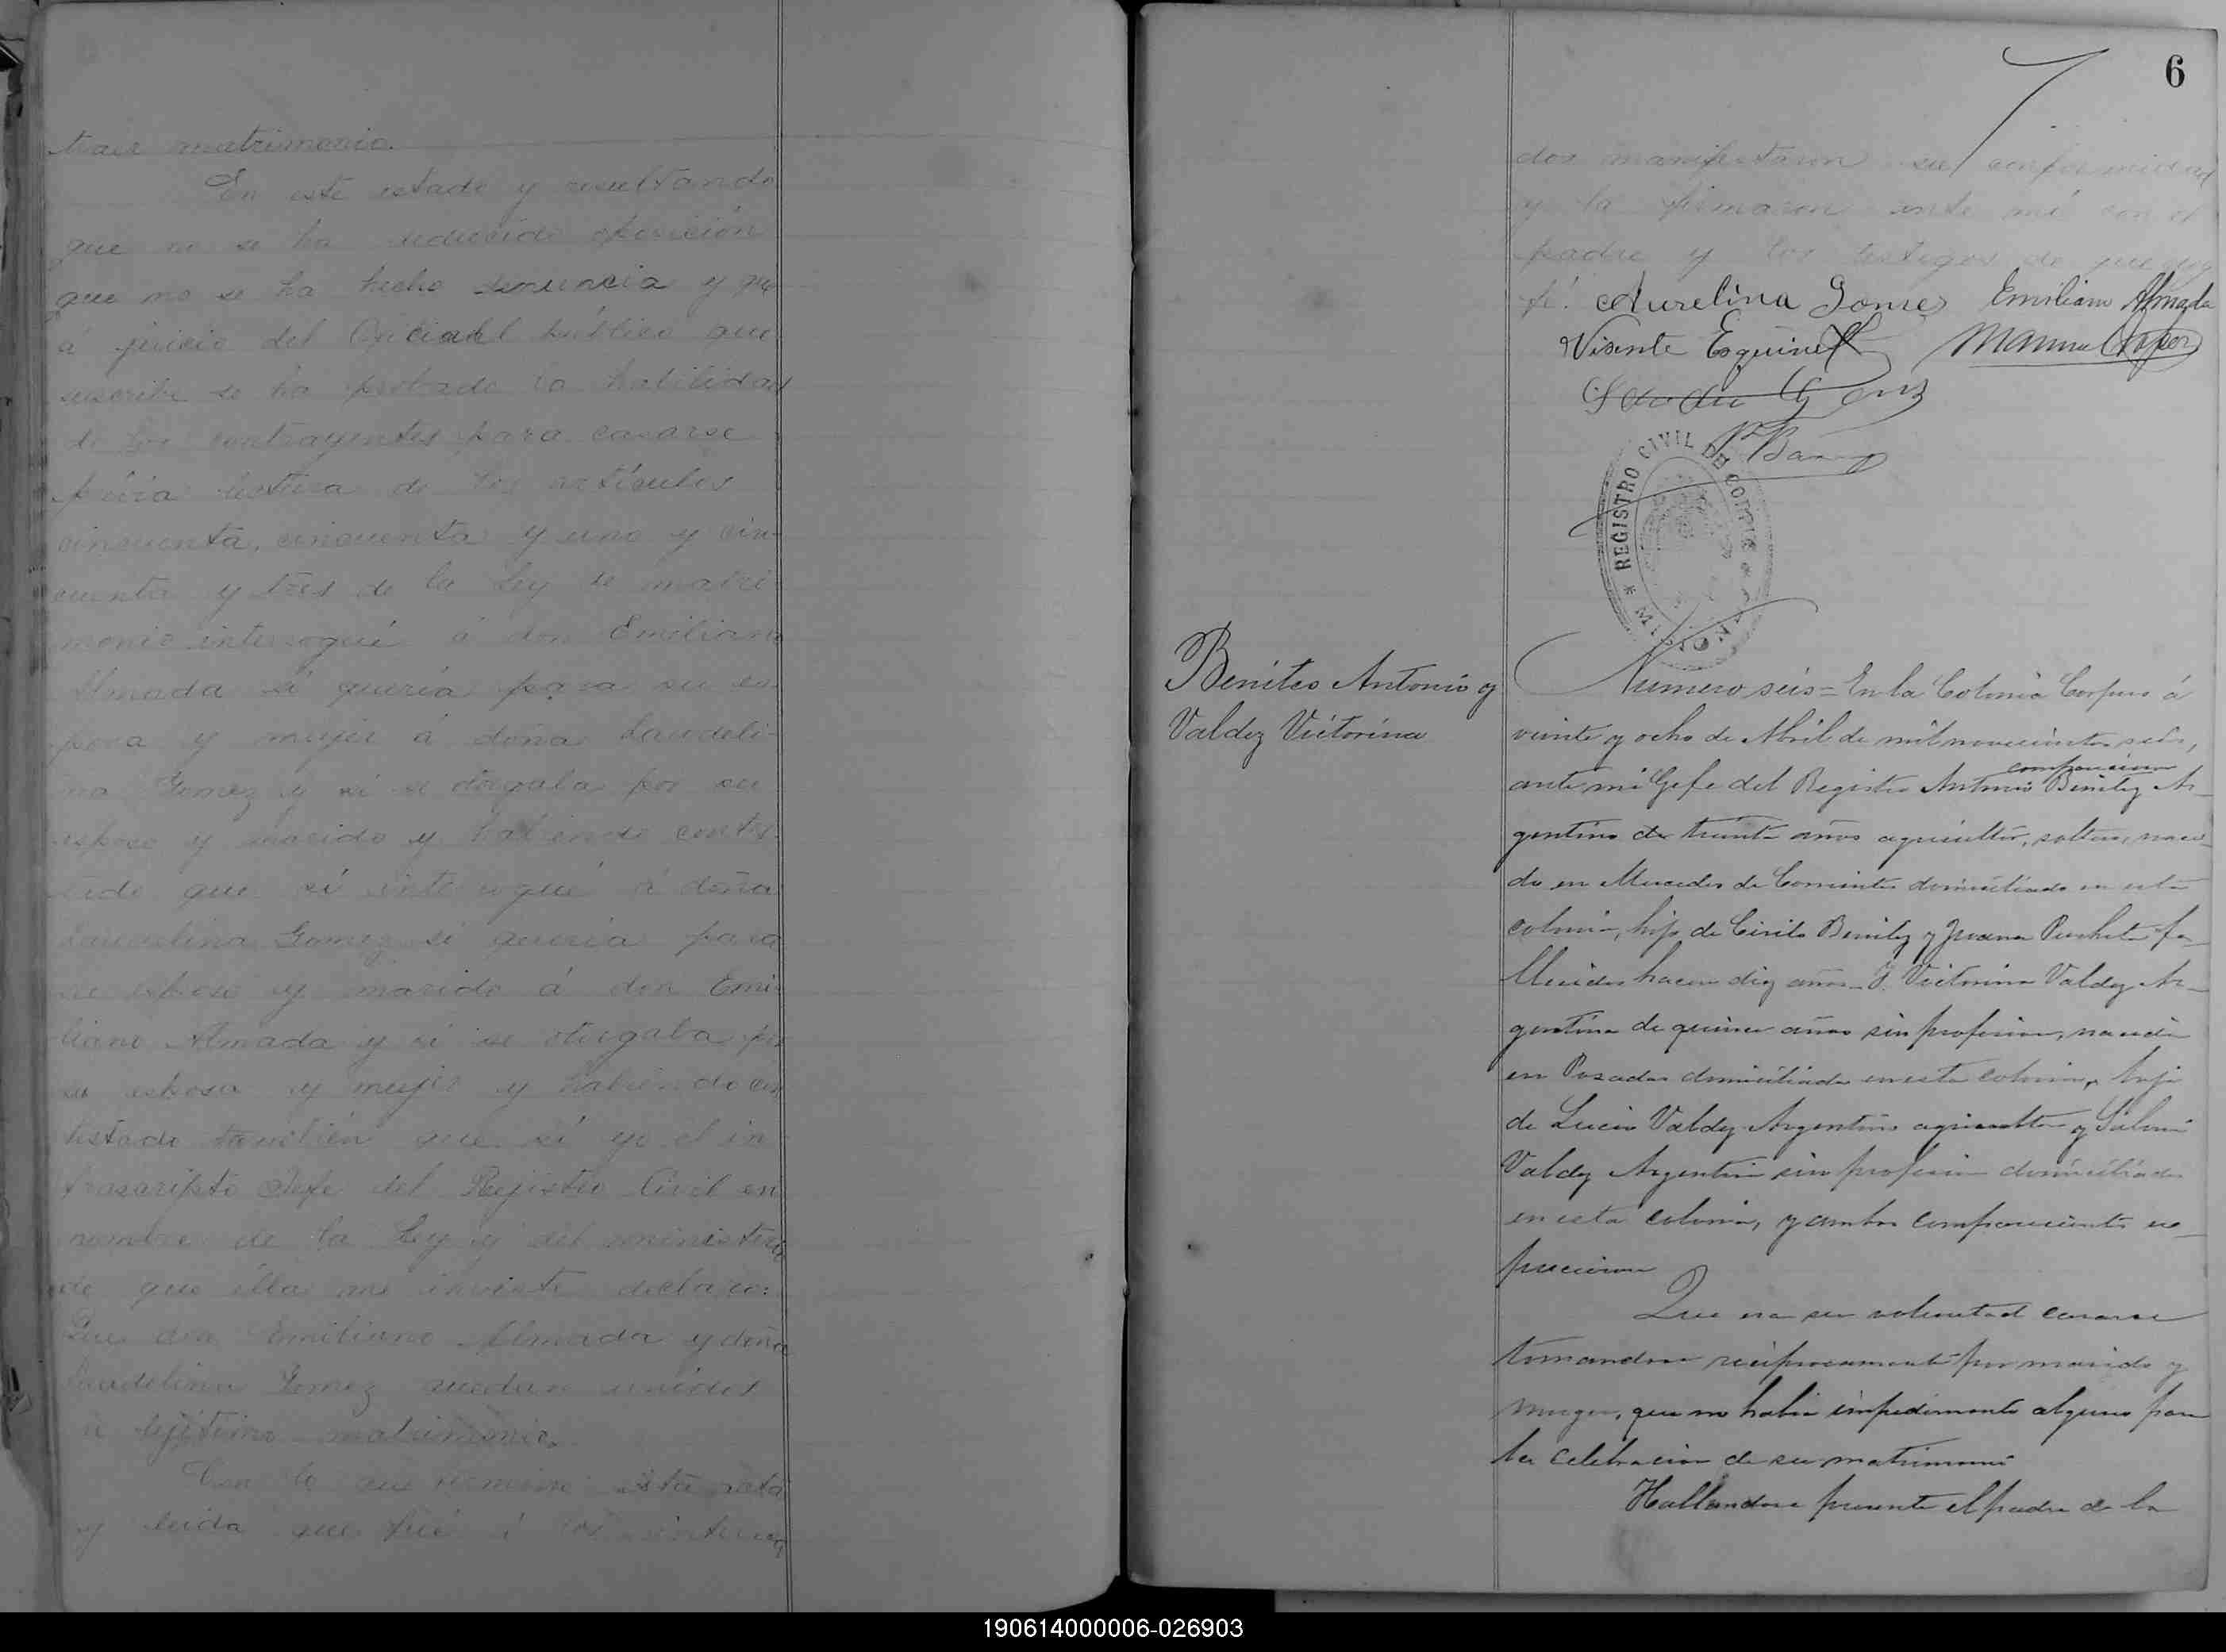 traer matrimonio.
En este estado y resultando
que no se ha deducido oposición
que no se ha hecho denuncia y que
á juicio del Oficial público que
suscribe se ha probado la habilidad
de los contrayentes para casarse
prévia lectura de los artículos
cincuenta, cincuenta y uno y cin-
cuenta y tres de la Ley de matri-
monio interrogué á don Emiliano
Almada si quería para su es-
posa y mujer á doña Laudeli-
na Gomez y si se otorgaba por su
esposo y marido y habiendo contes-
tado que sí interrogué á doña
Laudelina Gomez si queria para
su esposo y marido á don Emi-
liano Almada y si se otorgaba por
su esposa y mujer y habiendo con
testado tambien que sí yo el in-
frascripto Jefe del Rejistro Civil en
nombre de la Ley y del ministerio
de que ella me inviste declaro:
Que don Emiliano Almada y doña
Laudelina Gomez quedan unidos
en lejítimo matrimonio.
Con lo que terminó esta acta
y leida que fué á los interesa
6
dos manifestaron su conformidad
y la firmaron ante mí con el
padre y los testigos de que doy
fé. Aurelina Gomes Emiliano Almada
Visente Esquivel Manuel
REGISTRO CIVIL DE CORPUS
* MISIONES *
Benites Antonio y
Valdez Victorina
Numero seis = En la Colonia Corpus á
veinte y ocho de Abril de mil novecientos seis,
comparecieron
ante mi Gefe del Registro Antonio Benitez Ar-
gentino de treinta años agricultor, soltero, naci-
do en Mercedes de Corrientes domiciliado en esta
colonia, hijo de Cirilo Benitez y Juana Pucheta fa-
llecidos hacen diez años - Y Victorina Valdez Ar-
gentina de quince años sin profesion, nacida
en Posadas domiciliada en esta colonia, hija
de Lucio Valdez Argentino agricultor y
Valdez Argentina sin profesion domiciliados
en esta colonia, y ambos comparecientes es-
presaron
Que era su voluntad casarse
tomandose reciprocamente por marido y
muger, que no habia impedimento alguno para
la celebracion de su matrimonio
Hallandose presente el padre de la
190614000006-026903